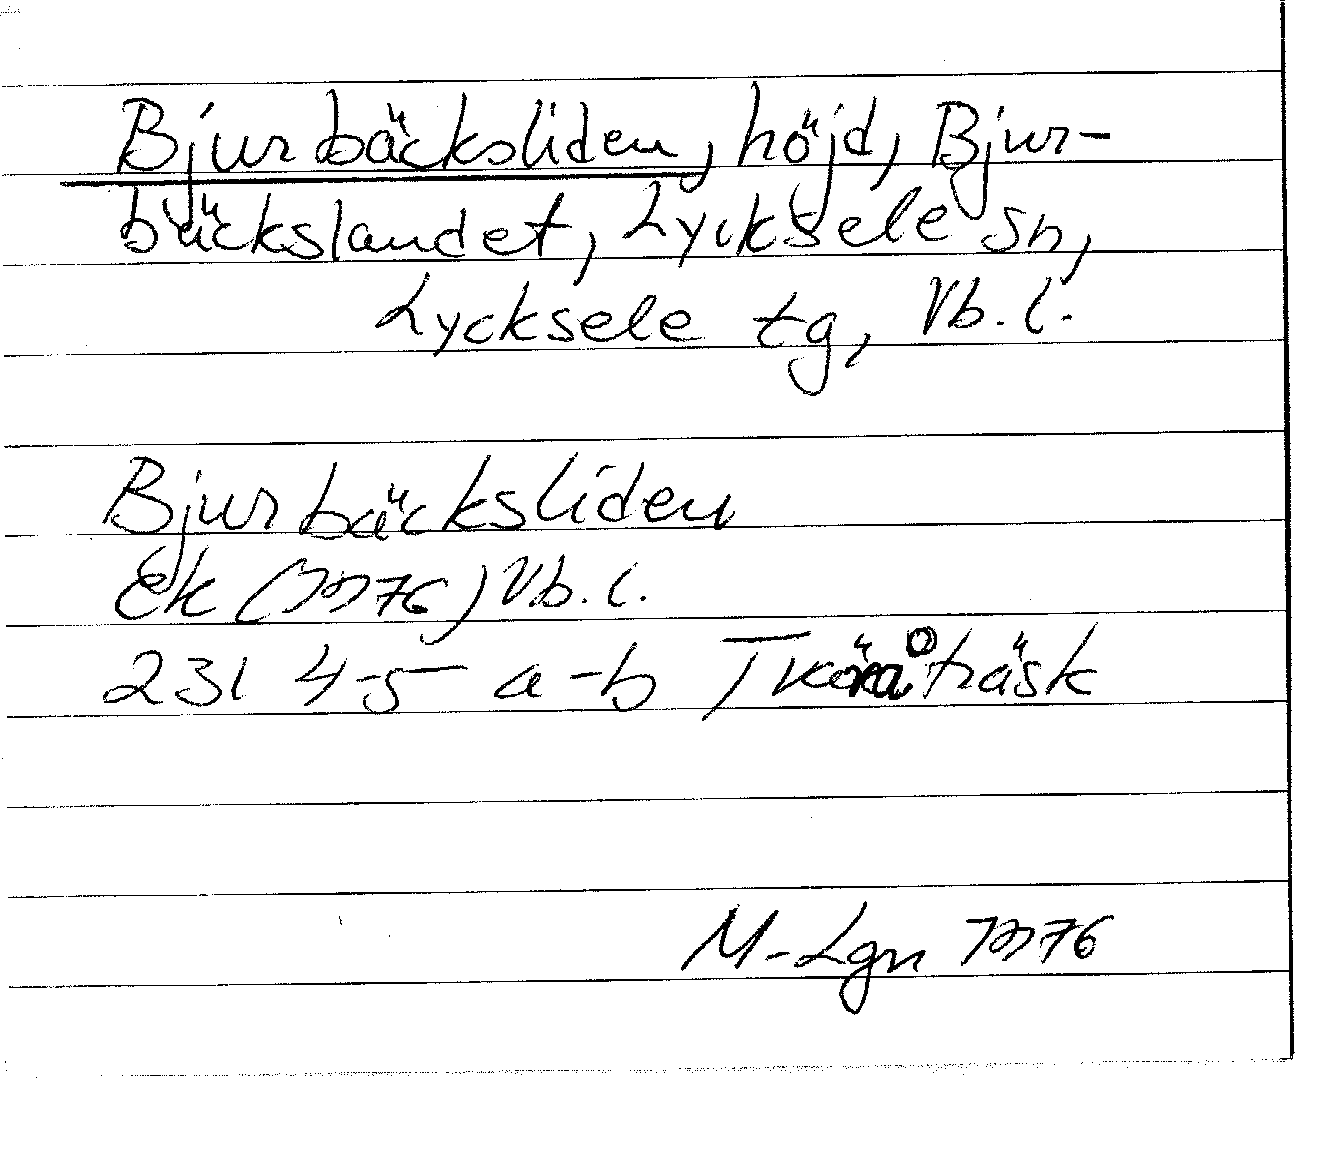 Bjurbäcksliden, höjd, Bjur-
bäckslandet, Lycksele sn,
Lycksele tg, Vb. l.
Bjurbäcksliden
Ek (1976) Vb. l.
231 4-5 a-b Tväråträsk
M-Lgn 1976